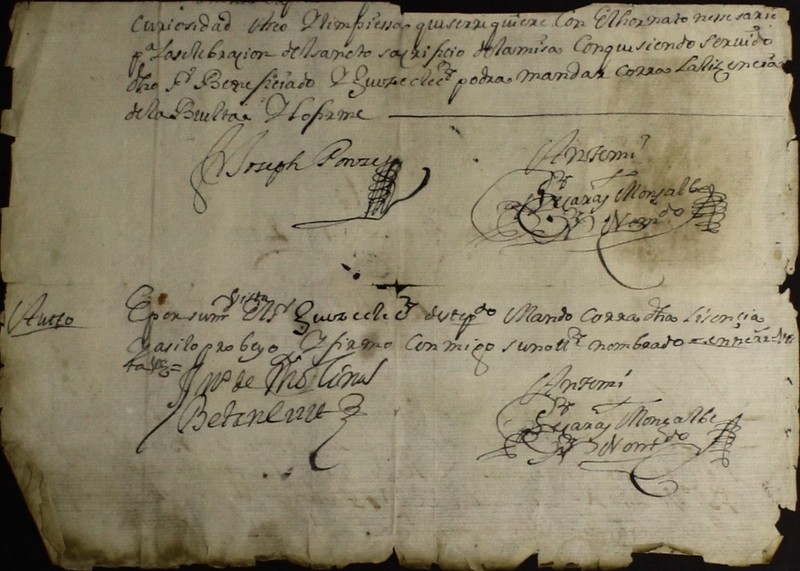 curiosidad Aseo Y limpiessa qui serrequiere Con El hornato nessesario
pa. la selebrazion del sancto sacrificio de la misa Conqusiendo servido
dho Sr. Beneficiado Y Juez ecleco. podra mandar corra La lizencia
de la Buelta Y lo firme
Joseph Ponze
Antemi
Suaras Monsalbe
Nomdo
Autto
E por sum Vista El Sr. Juez ecleco. destepdo Mando Corra dha Lisencia
Y asilo probeyo Y firmo Conmigo sunotto. nombrado
Molina
Betancurt
Antemi
Suaras Monsalbe
Nomdo